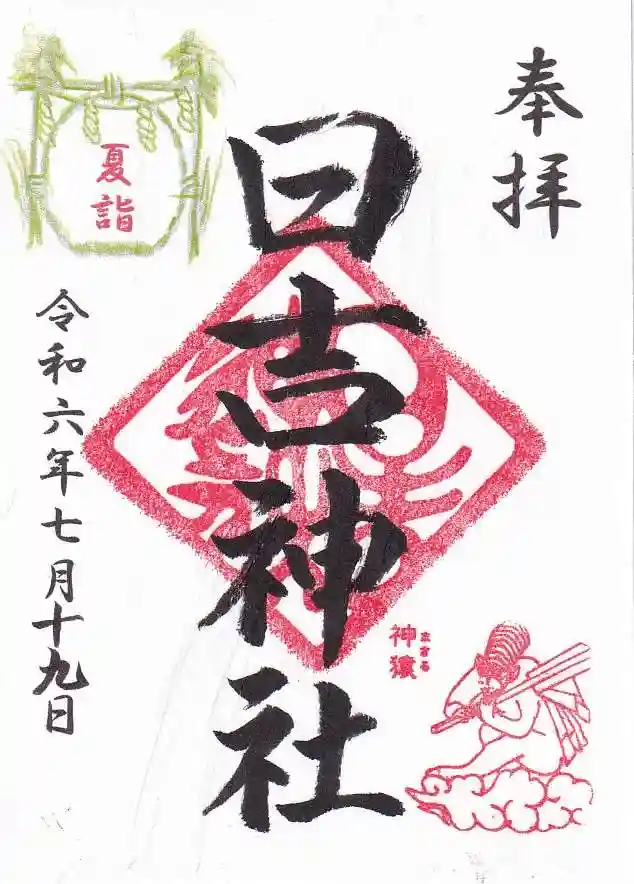 奉拝
日吉神社
神猿
まさる
夏詣
令和六年七月十九日